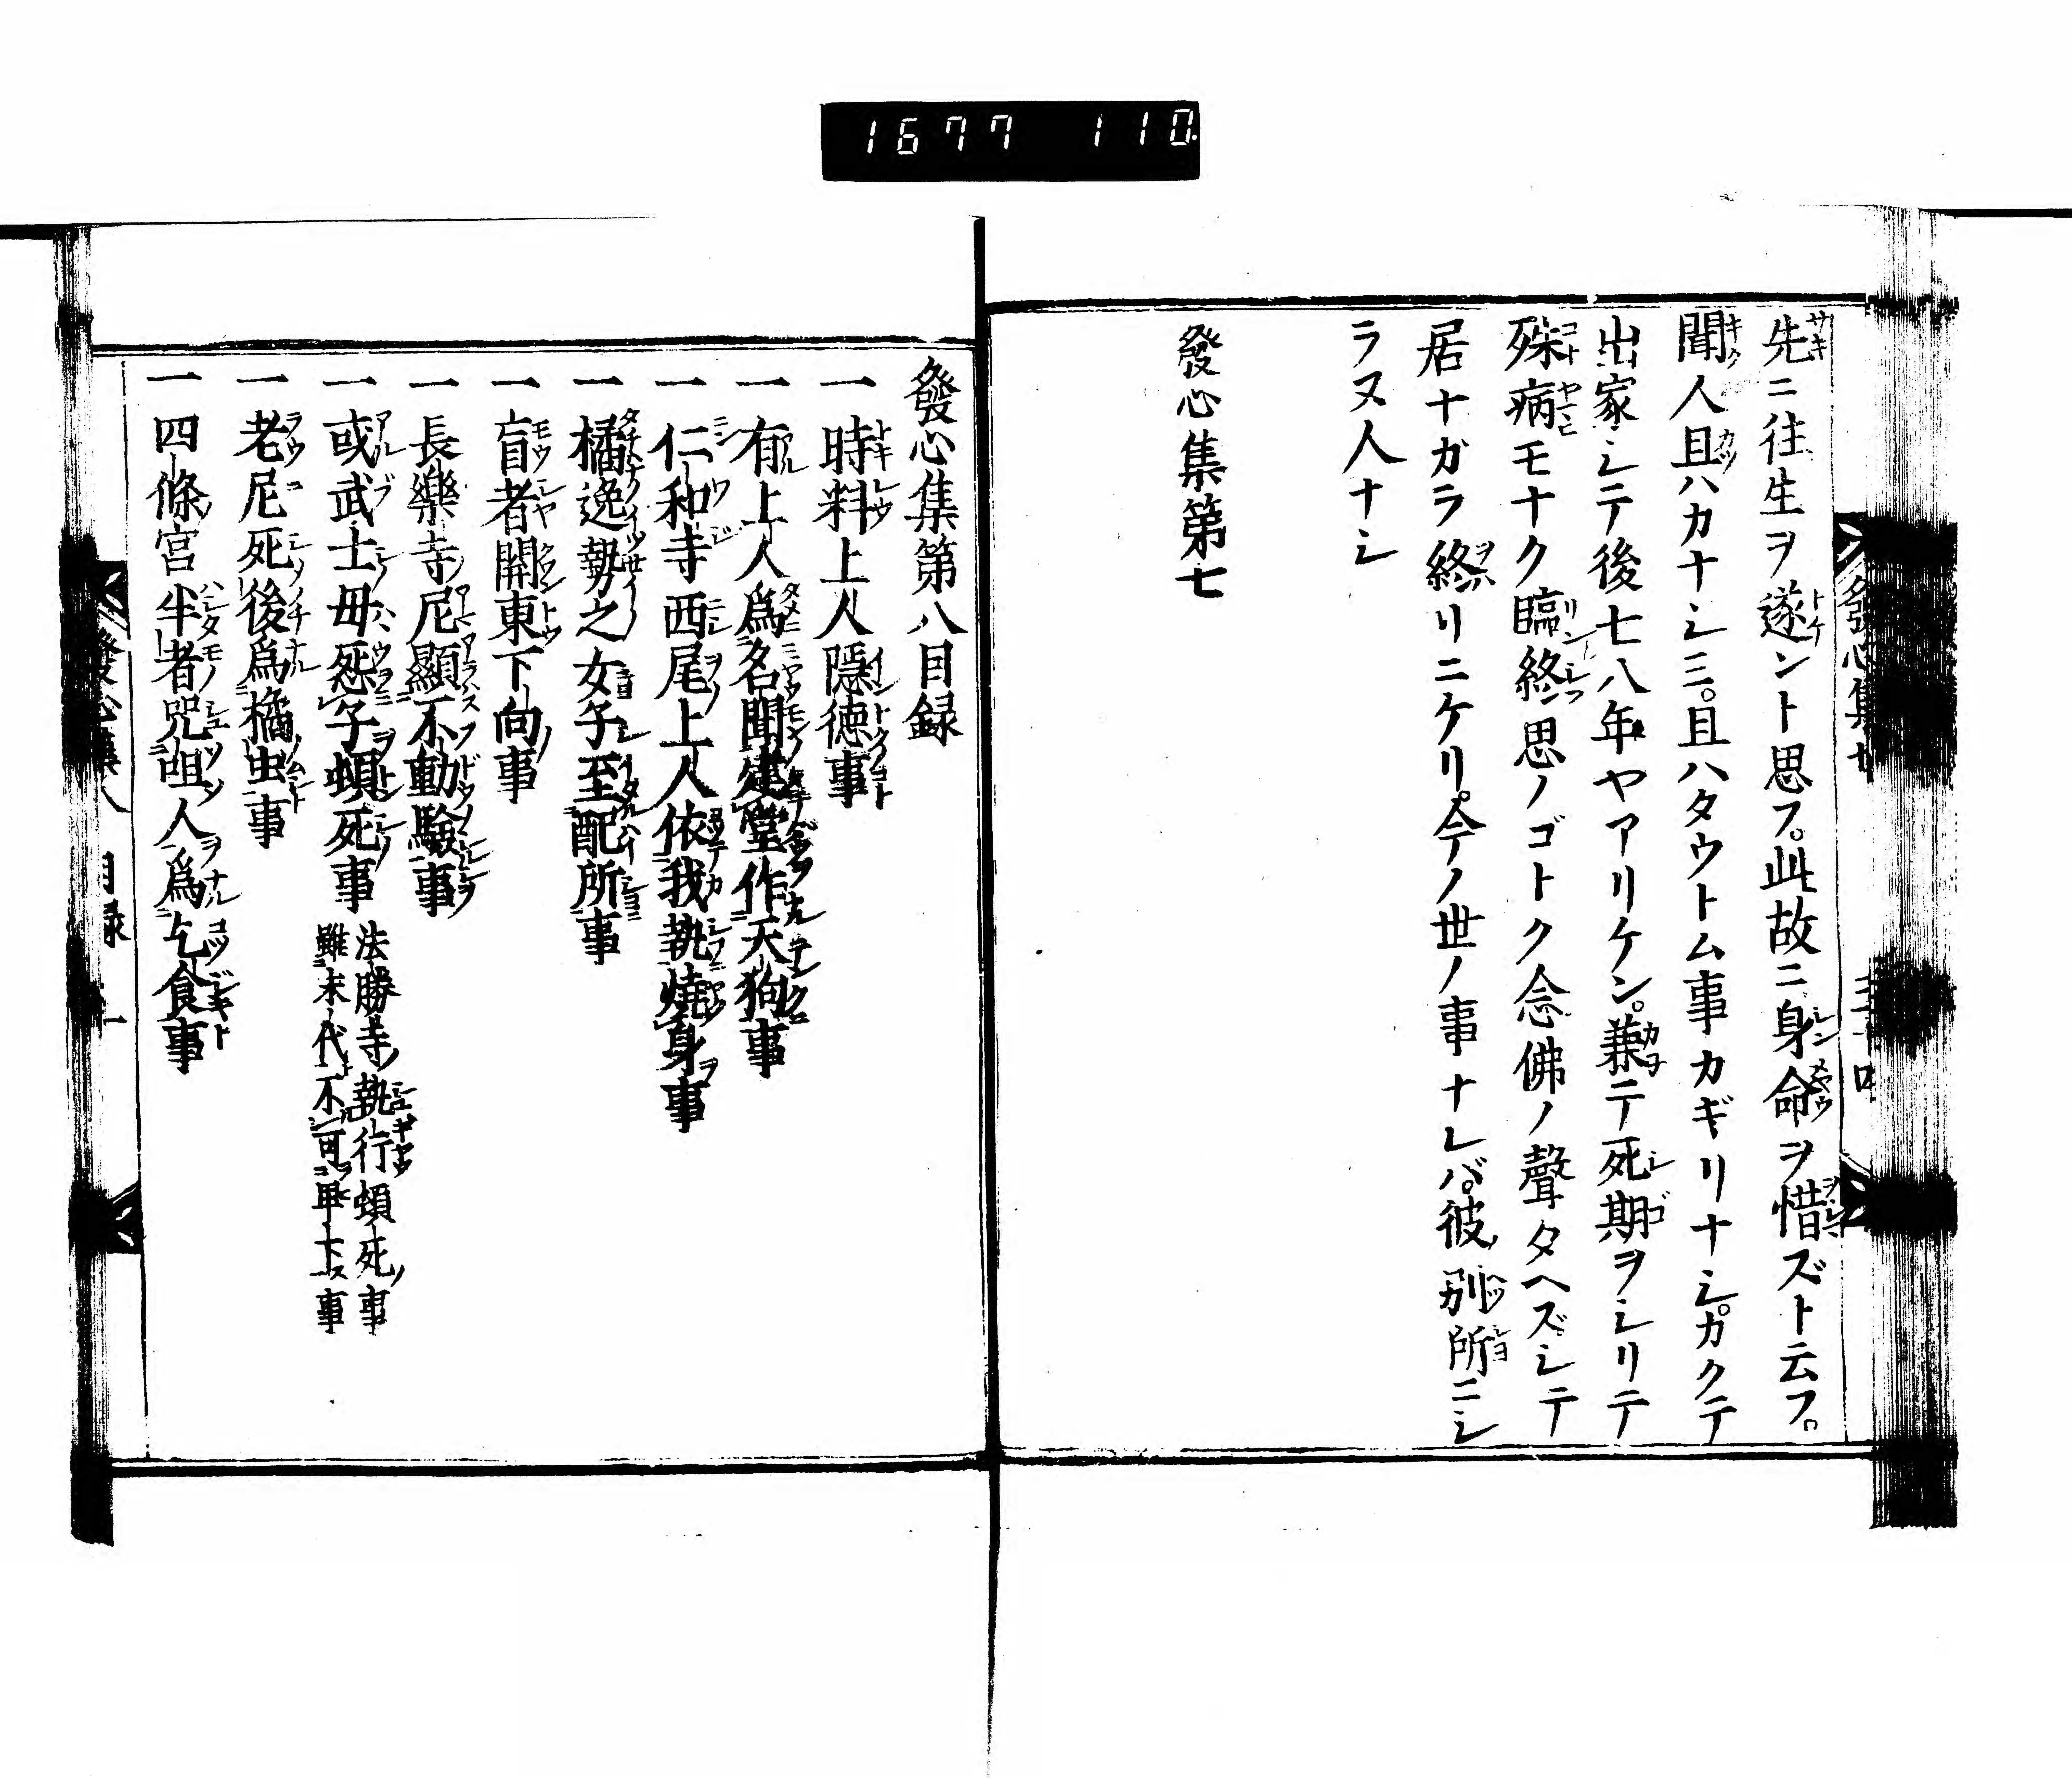 1677 110.
先ニ往生ヲ遂ント思フ。此故ニ身命ヲ惜ズト云フ。
聞人且ハカナシミ。且ハタウトム事カギリナシ。カクテ
出家シテ後七八年ヤアリケン。兼テ死期ヲシリテ
殊病モナク臨終思ノゴトク念佛ノ聲タヘズシテ
居ナガラ終リニケリ。今ノ世ノ事ナレバ。彼別所ニシ
ラヌ人ナシ
發心集第七
發心集第八目録
一時料上人隠德事
一有上人爲名聞建堂作天狗事
一仁和寺西尾上人依我執燒身事
一橘逸勢之女子至配所事
一盲者關東下向事
一長樂寺尼顯不動驗事
一或武士母怨子頓死事
法勝寺執行頓死事
雖末代不可卑下事
一老尼死後爲橘虫事
一四條宮半者咒咀人爲乞食事
目録 一